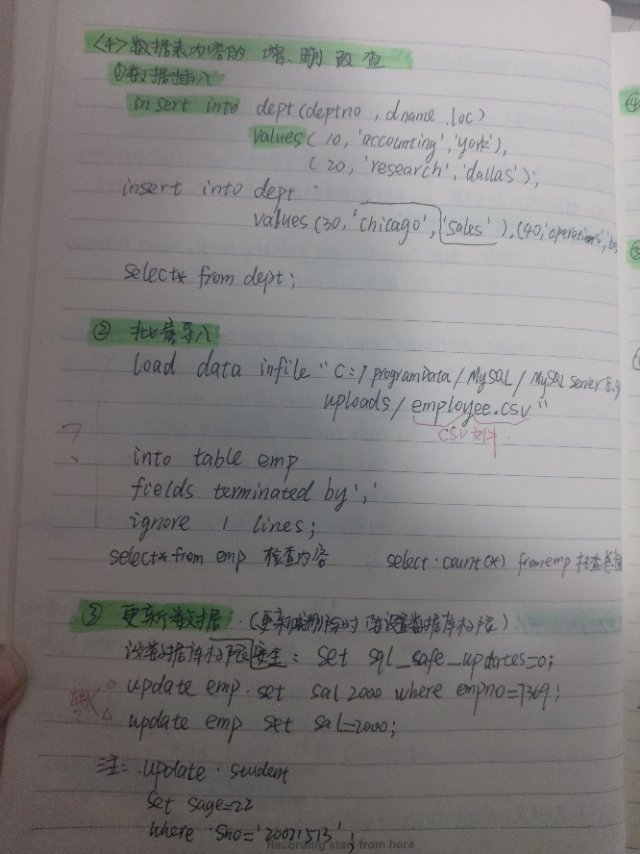 <4>数据表内容的 增、删 改 查
①数据插入
insert into dept(deptno, dname, loc)
values( 10, 'accounting', 'york'),
( 20, 'research', 'dallas');
insert into dept
values (30, 'chicago', 'sales' ), (40, 'operations',
select* from dept;
② 批量导入
load data infile "C:/programData/MySQL/MySQL Server
uploads/employee.csv"
csv文件
?
into table emp
fields terminated by ','
ignore 1 lines;
select*from emp 检查内容 select count(*) from emp 检查
③ 更新数据.(更新或删除时 需设置数据库权限)
设数据库权限安全: set sql_safe_updates=0;
update emp set sal 2000 where empno=7369;
update emp set sal=2000;
注: update student
set sage=22
where sno='20021513';
Recording start from here